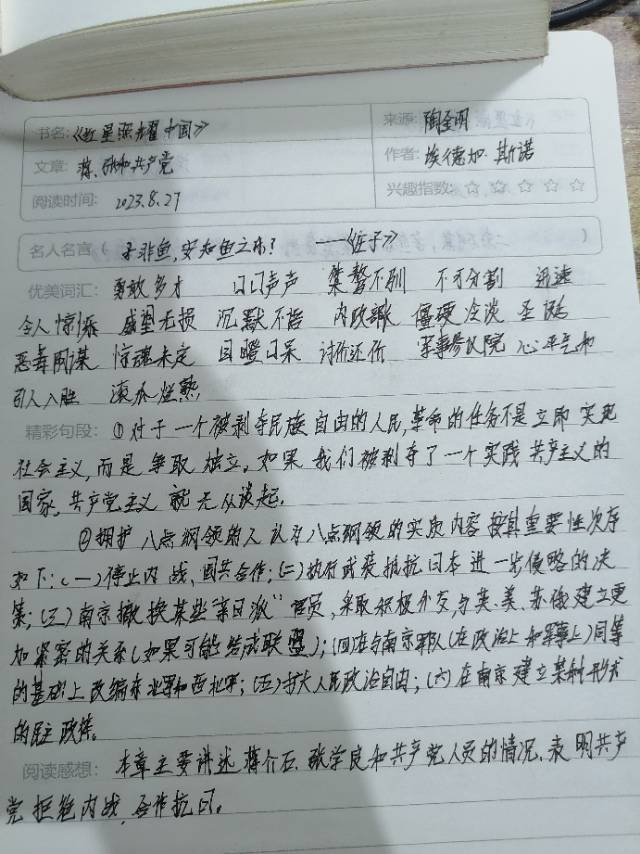 书名:《红星照耀中国》 来源: 陶至明
文章: 蒋、张和共产党 作者: 埃德加·斯诺
阅读时间: 2023.8.27 兴趣指数: ☆ ☆ ☆ ☆ ☆
名人名言( 子非鱼,安知鱼之乐? ——《庄子》 )
优美词汇: 勇敢多才 口口声声 桀骜不驯 不可分割 迅速
令人惊乐 威望无损 沉默不语 内政部 僵硬冷淡 圣诞
恶毒阴谋 惊魂未定 目瞪口呆 讨价还价 军事参议院 心平气和
引人入胜 滚瓜烂熟
精彩句段: ①对于一个被剥夺民族自由的人民,革命的任务不是立即实现
社会主义,而是争取独立。如果我们被剥夺了一个实践共产主义的
国家,共产党主义就无从谈起。
②拥护八点纲领的人认为八点纲领的实质内容按其重要性次序
如下:(一)停止内战,国共合作;(二)执行武装抵抗日本进一步侵略的决
策;(三)南京撤换某些“亲日派”官员,采取积极外交,与英、美、苏俄建立更
加紧密的关系(如果可能结成联盟);(四)在与南京军队(在政治上和军事上)同等
的基础上改编东北军和西北军;(五)扩大人民政治自由;(六)在南京建立某种形式
的民主政体。
阅读感想: 本章主要讲述蒋介石、张学良和共产党人员的情况,表明共产
党拒绝内战,合作抗日。